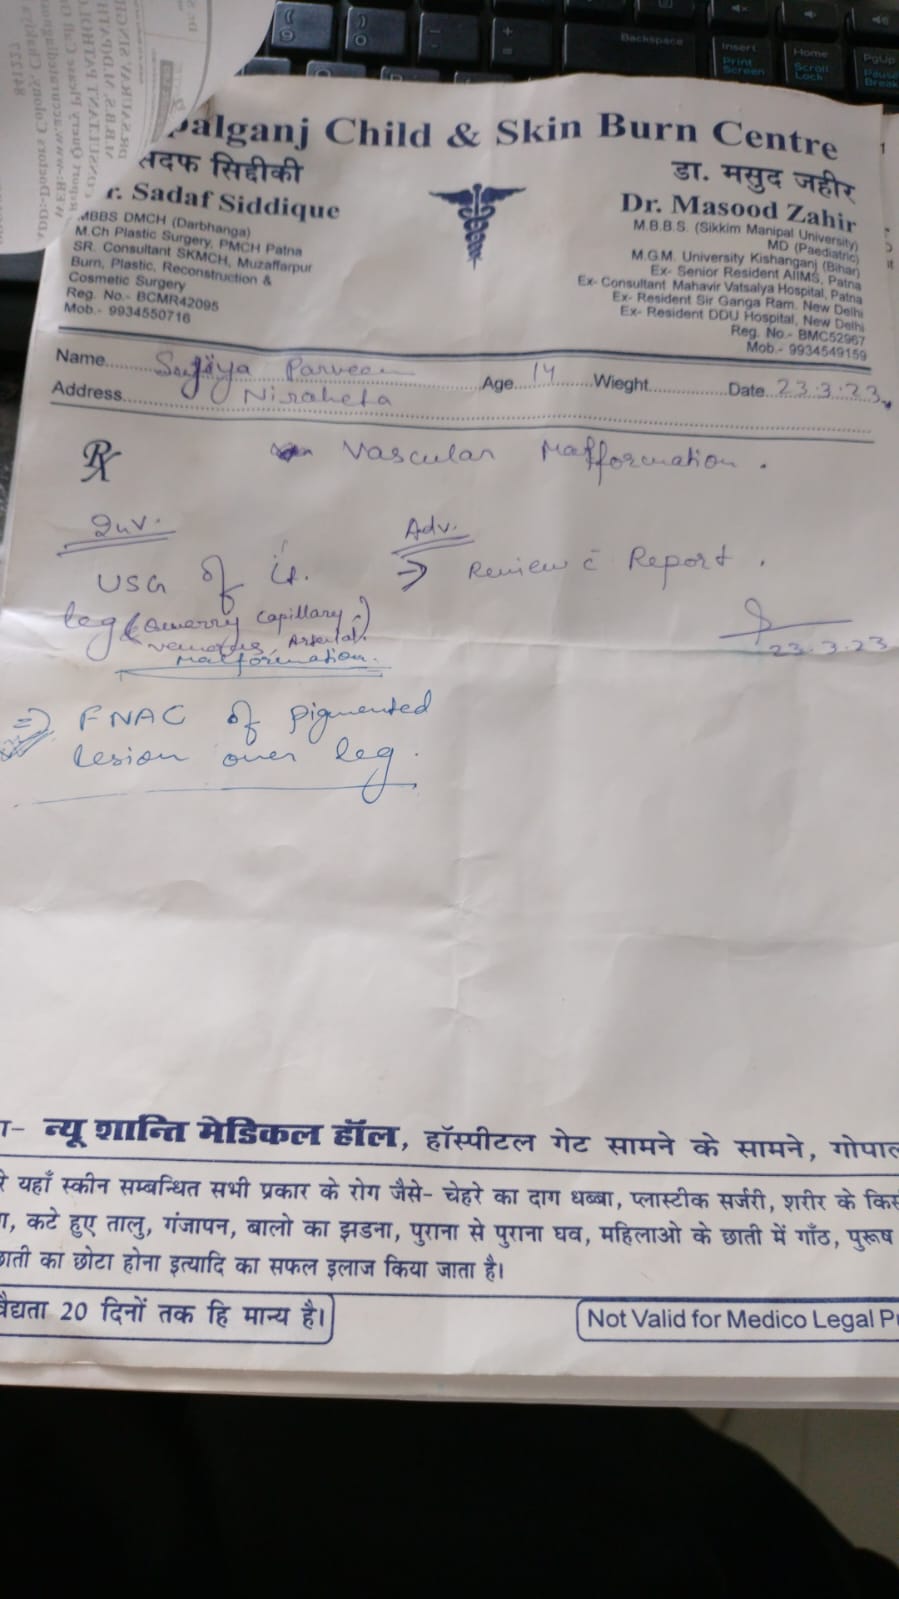 palganj Child & Skin Burn Centre
सदफ सिद्दीकी
r. Sadaf Siddique
MBBS DMCH (Darbhanga)
M.Ch Plastic Surgery, PMCH Patna
SR. Consultant SKMCH, Muzaffarpur
Burn, Plastic, Reconstruction &
Cosmetic Surgery
Reg. No.- BCMR42095
Mob.- 9934550716
डा. मसुद जहीर
Dr. Masood Zahir
M.B.B.S. (Sikkim Manipal University)
MD (Paediatric)
M.G.M. University Kishanganj (Bihar)
Ex- Senior Resident AIIMS, Patna
Ex- Consultant Mahavir Vatsalya Hospital, Patna
Ex- Resident Sir Ganga Ram. New Delhi
Ex- Resident DDU Hospital, New Delhi
Reg. No.- BMC52967
Mob.- 9934549159
Name Parveen Age 14 Wieght Date 23.3.23
Address
Rx
Vascular Malformation.
Inv.
USG of
leg (Capillary
Malformation.
⇒ FNAC of pigmented
lesion over leg.
Adv.
→ Review c̄ Report.
23.3.23
न्यू शान्ति मेडिकल हॉल, हॉस्पीटल गेट सामने के सामने, गोपाल
यहाँ स्कीन सम्बन्धित सभी प्रकार के रोग जैसे- चेहरे का दाग धब्बा, प्लास्टीक सर्जरी, शरीर के किस
कटे हुए तालु, गंजापन, बालो का झडना, पुराना से पुराना घव, महिलाओ के छाती में गाँठ, पुरूष
छाती का छोटा होना इत्यादि का सफल इलाज किया जाता है।
वैद्यता 20 दिनों तक हि मान्य है।
Not Valid for Medico Legal P